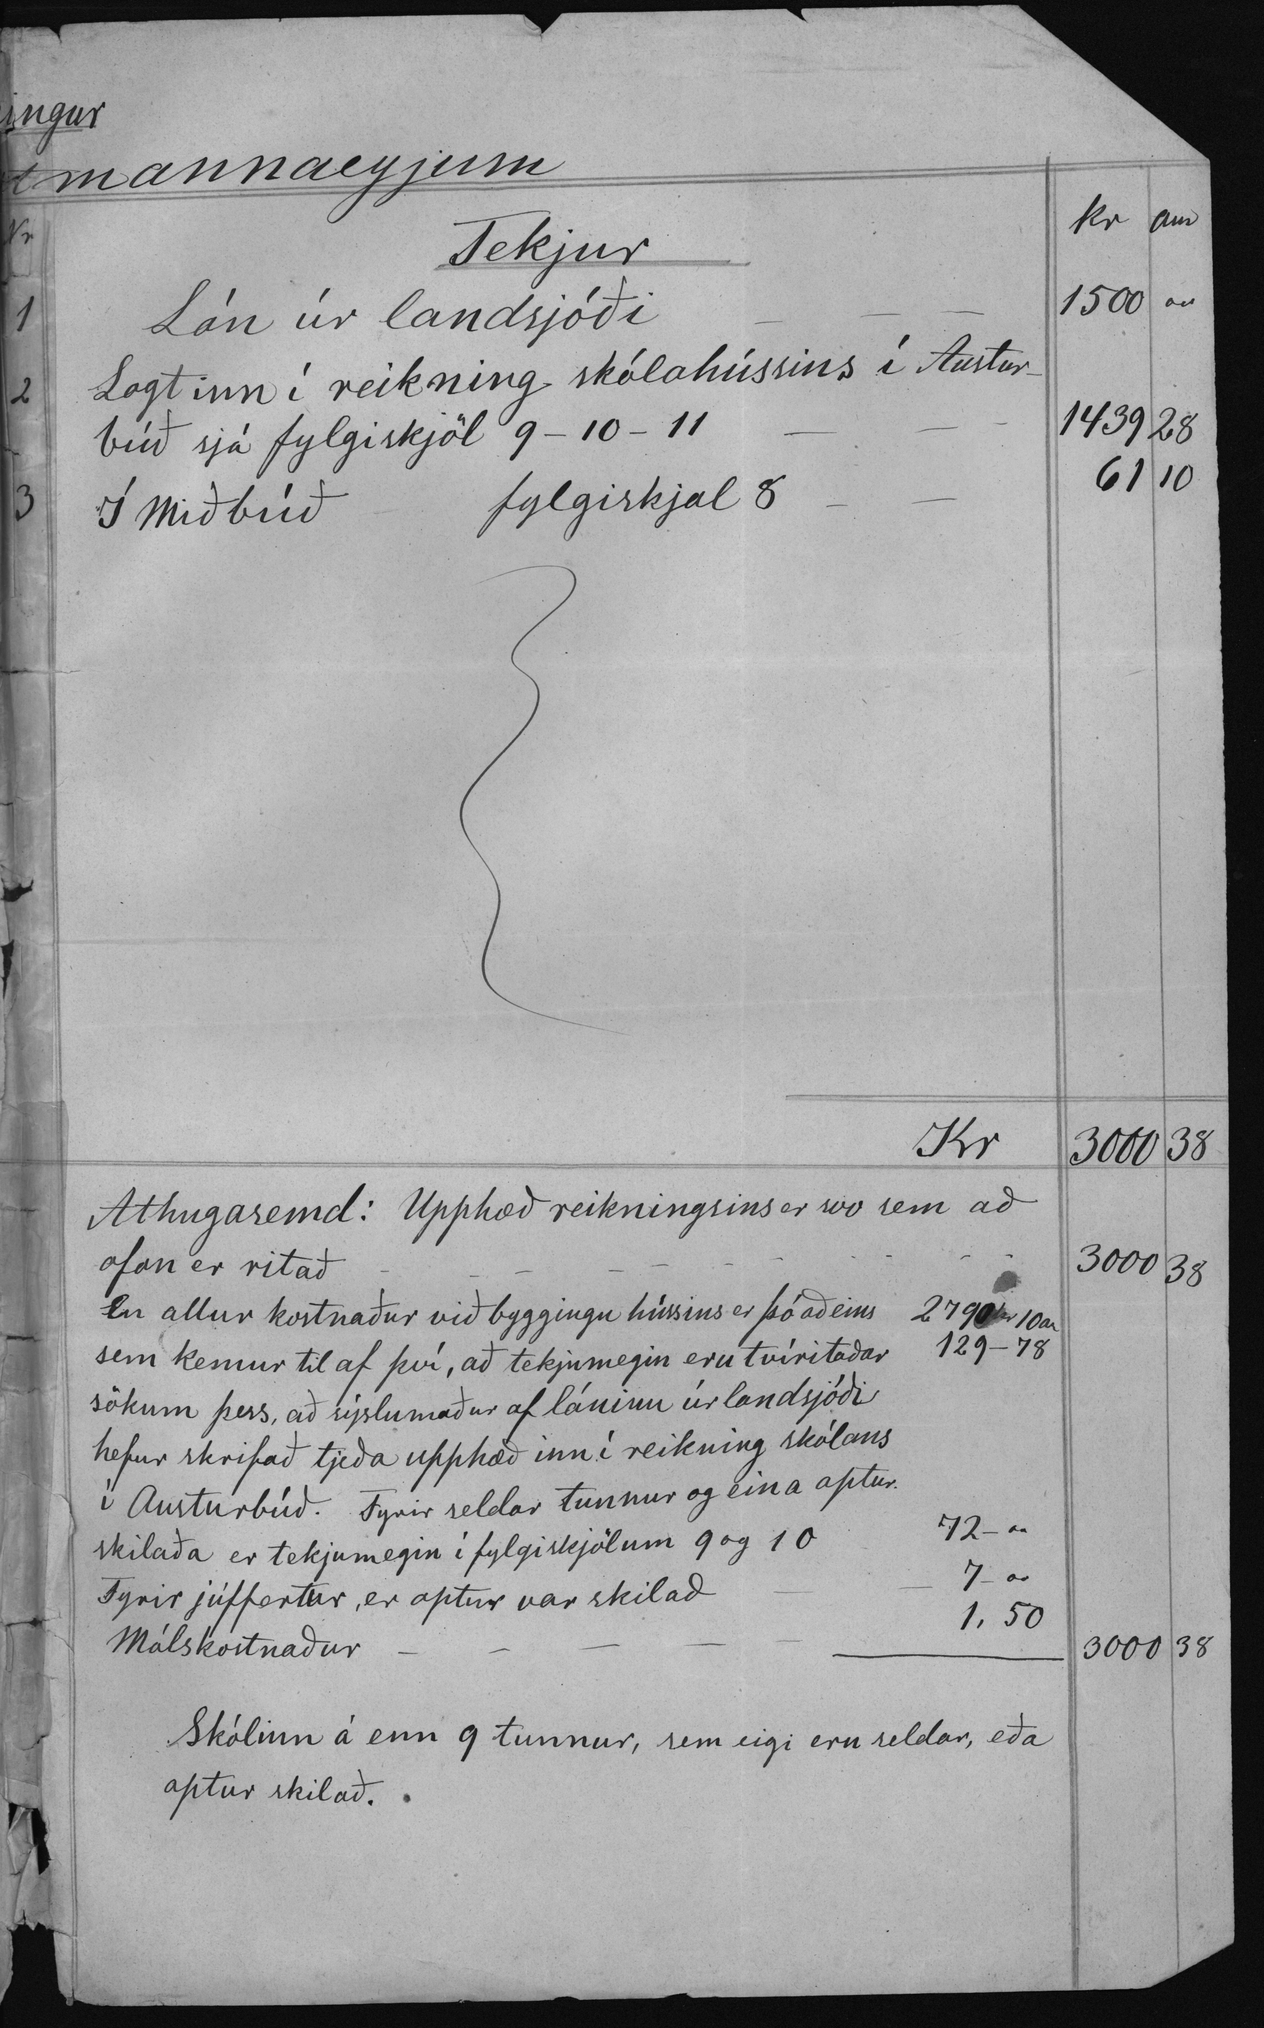 ingur
tmannaeyjum
Nr Tekjur kr aur
1 Lán úr landsjóði — — — 1500 "
2 Lagt inn í reikning skólahússins í Austur-
búð sjá fylgiskjöl 9 - 10 - 11 — — - 1439 28
3 Í Miðbúð - fylgiskjal 8 - — 61 10
Kr 3000 38
Athugasemd: Upphæð reikningsins er svo sem að
ofan er ritað - - - - - - - - - - 3000 38
En allur kostnaður við byggingu hússins er þó aðeins 2790 kr 10 au
sem kemur til af því, að tekjumegin eru tvíritaðar 129 - 78
sökum þess, að sýslumaður af láninu úr landsjóði
hefur skrifað tjeða upphæð inn í reikning skólans
í Austurbúð. Fyrir seldar tunnur og eina aptur-
skilaða er tekjumegin í fylgiskjölum 9 og 10 72 - "
Fyrir júffertur, er aptur var skilað — — 7 - "
Málskostnaður - - — — - 1. 50
3000 38
Skólinn á enn 9 tunnur, sem eigi eru seldar, eða
aptur skilað.